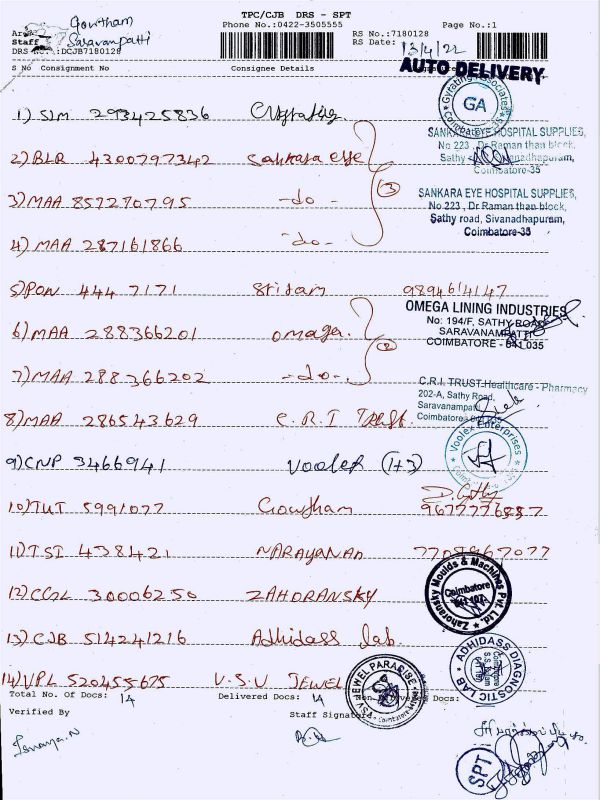 TPC/CJB DRS - SPT
Phone No.:0422-3505555 Page No.:1
Gowtham
Saravanpatti
Staff
DRS No.:DCJB7180128
RS No.:7180128
RS Date: 13/4/22
AUTO DELIVERY
S No Consignment No Consignee Details
1) SLM 293425836
GA
2) BLR 4300797342 Sankara eye
SANKARA EYE HOSPITAL SUPPLIES,
No 223, Dr Raman than block,
Sathy Sivanadhapuram,
Coimbatore-35
3) MAA 857270795 -do- (3)
SANKARA EYE HOSPITAL SUPPLIES,
No 223, Dr Raman than block,
Sathy road, Sivanadhapuram,
Coimbatore-35
4) MAA 287161866 -do-
5) PON 444 7171 Sridam
6) MAA 288366201 omega
OMEGA LINING INDUSTRIES
No: 194/F, SATHY ROAD
SARAVANAMPATTI
COIMBATORE - 641 035
7) MAA 288366202 -do- (2)
C.R.I. TRUST-Healthcare - Pharmacy
202-A, Sathy Road,
Saravanampatti
Coimbatore
8) MAA 286543629 C.R.I Trust.
9) CNP 3466941 Voolex (1+3)
Voolex Enterprises
10) TUT 5991077 Gowtham
11) TSI 438421 NARAYANAN 7708967077
12) CCGL 30006250 ZAHORANSKY
Zahoransky Moulds & Machines Pvt. Ltd.
Coimbatore
13) CJB 514241216 Adhidass lab.
ADHIDASS DIAGNOSTIC LAB
14) VPL 520455675 V.S.V JEWEL
VSV JEWEL PARADISE
Coimbatore
Total No. Of Docs: 14 Delivered Docs: 14 Non Delivered Docs:
Verified By Staff Signature
SPT